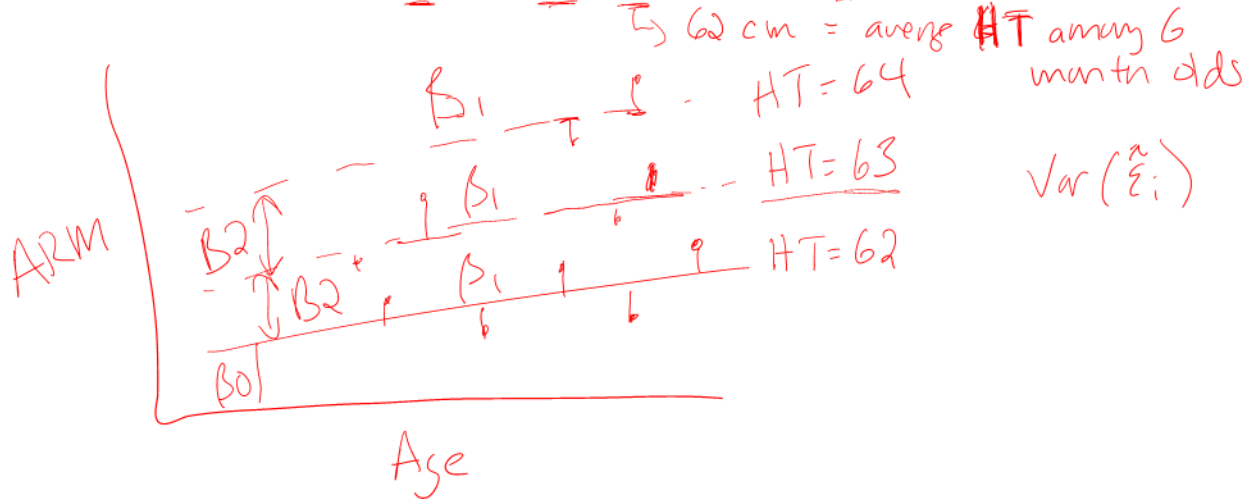 ↳ 62 cm = averge HT among 6
month olds
β1 HT = 64
β1 HT = 63
Var(ε̂i)
ARM
B2
B2
β1 HT = 62
β0
Age